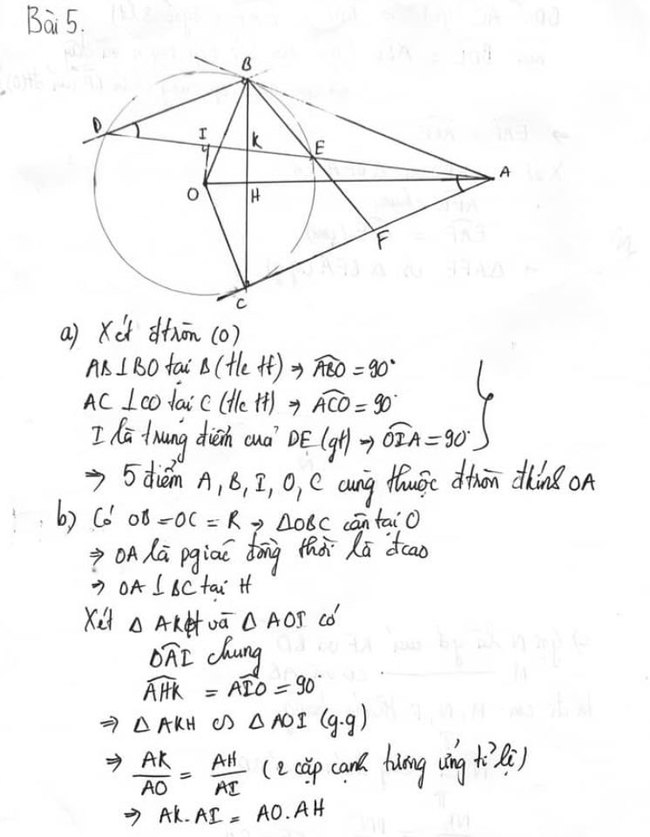 Bài 5.
B
D
I
K
E
A
O
H
F
C
a) Xét đtròn (O)
AB⊥BO tại B (t/c tt) ⇒ ABO = 90°
AC ⊥ CO tại C (t/c tt) ⇒ ACO = 90°
I là trung điểm của DE (gt) ⇒ OIA = 90°
⇒ 5 điểm A, B, I, O, C cùng thuộc đtròn đkính OA
b) Có OB = OC = R ⇒ ΔOBC cân tại O
⇒ OA là pgiác đồng thời là đcao
⇒ OA ⊥ BC tại H
Xét Δ AKH và Δ AOI có
OAI chung
AHK = AIO = 90°
⇒ Δ AKH ∽ Δ AOI (g.g)
⇒ AK/AO = AH/AI (2 cặp cạnh tương ứng tỉ lệ)
⇒ AK.AI = AO.AH